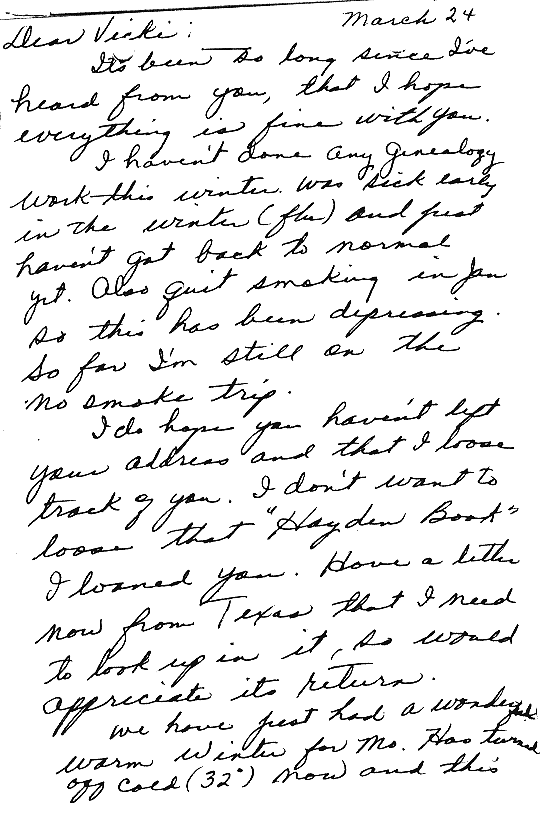 March 24
Dear Vicki:
Its been so long since I've
heard from you, that I hope
everything is fine with you.
I haven't done any genealogy
work this winter. was sick early
in the winter (flu) and just
haven't got back to normal
yet. Also quit smoking in Jan
so this has been depressing.
So far I'm still on the
no smoke trip.
I do hope you haven't left
your address and that I loose
track of you. I don't want to
loose that "Hayden Book"
I loaned you. Have a letter
now from Texas that I need
to look up in it, so would
appriciate its return.
We have just had a wonderful
warm winter for Mo. Has turned
off cold (32°) now and this